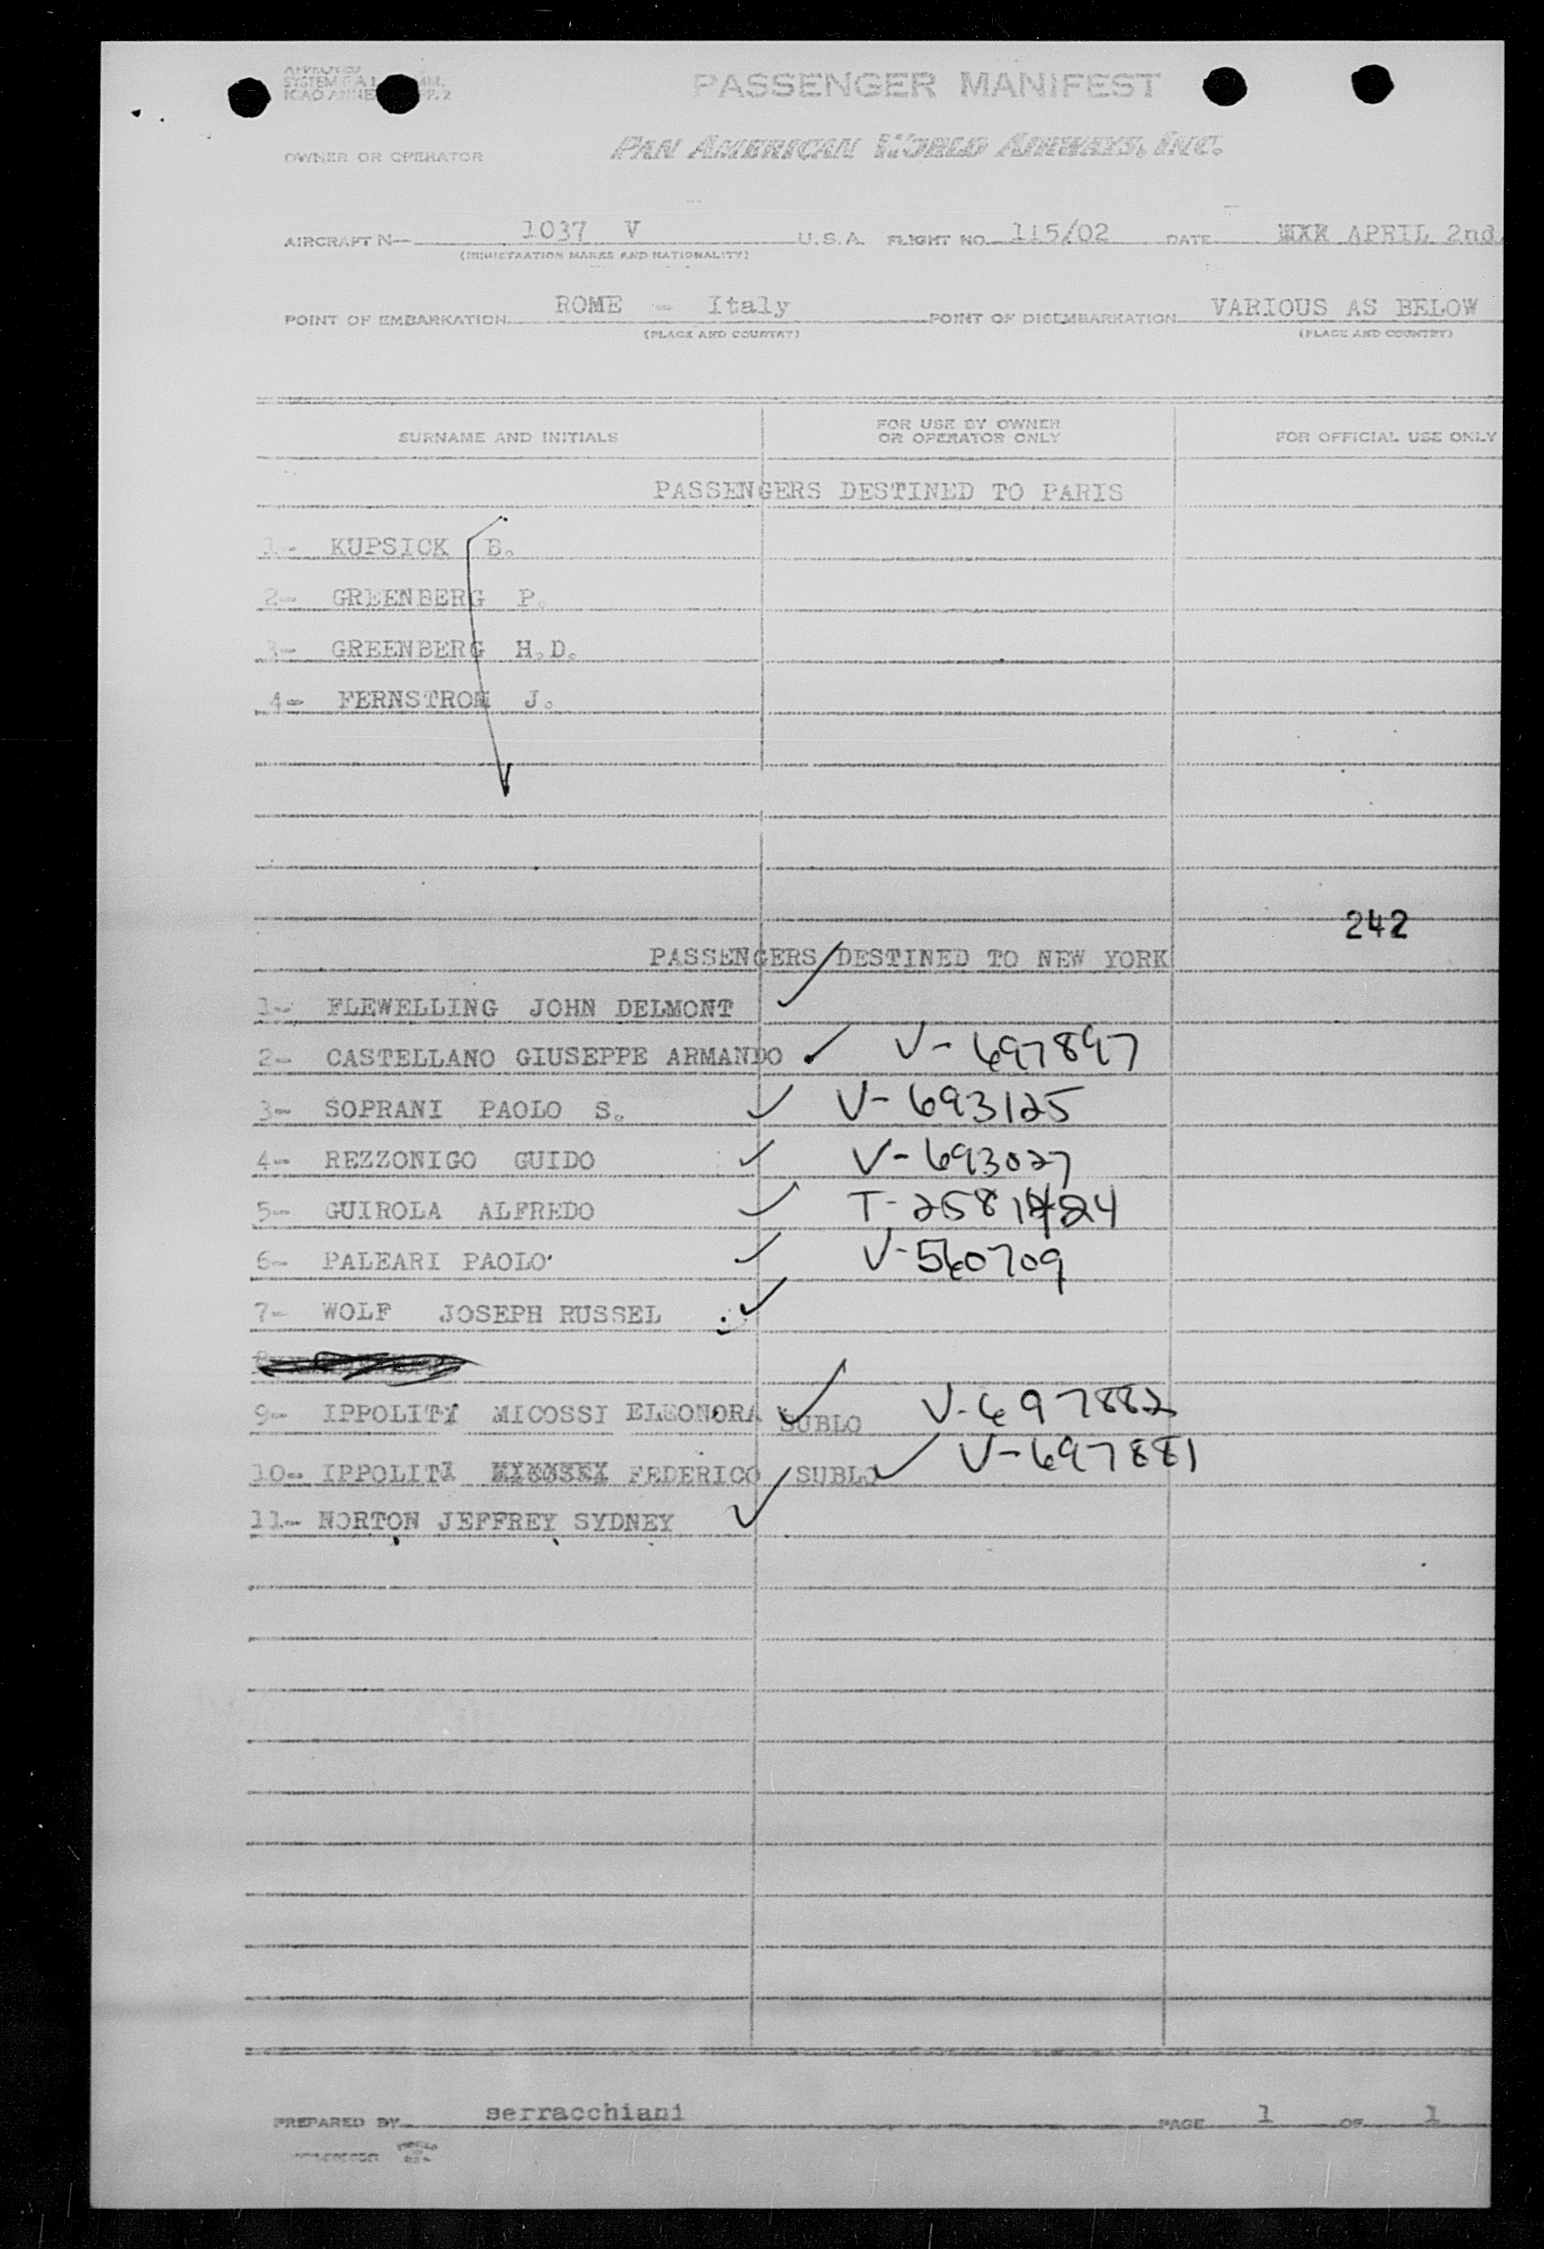 APPROVED
SYSTEM F A L
ICAO ANNEX PP. 2
PASSENGER MANIFEST
OWNER OR OPERATOR PAN AMERICAN WORLD AIRWAYS, INC.
AIRCRAFT N— 1037 V U.S.A. FLIGHT NO. 115/02 DATE APRIL 2nd.
(REGISTRATION MARKS AND NATIONALITY)
POINT OF EMBARKATION ROME - Italy POINT OF DISEMBARKATION VARIOUS AS BELOW
(PLACE AND COUNTRY) (PLACE AND COUNTRY)
SURNAME AND INITIALS FOR USE BY OWNER OR OPERATOR ONLY FOR OFFICIAL USE ONLY
PASSENGERS DESTINED TO PARIS
1- KUPSICK B.
2- GREENBERG P.
3- GREENBERG H.D.
4- FERNSTROM J.
242
PASSENGERS DESTINED TO NEW YORK
1- FLEWELLING JOHN DELMONT
2- CASTELLANO GIUSEPPE ARMANDO V-697897
3- SOPRANI PAOLO S. V-693125
4- REZZONIGO GUIDO V-693027
5- GUIROLA ALFREDO
6- PALEARI PAOLO V-560709
7- WOLF JOSEPH RUSSEL
9- IPPOLITY MICOSSI ELEONORA SUBLO V-697882
10- IPPOLITI FEDERICO SUBLO V-697881
11- NORTON JEFFREY SYDNEY
PREPARED BY serracchiani PAGE 1 OF 1